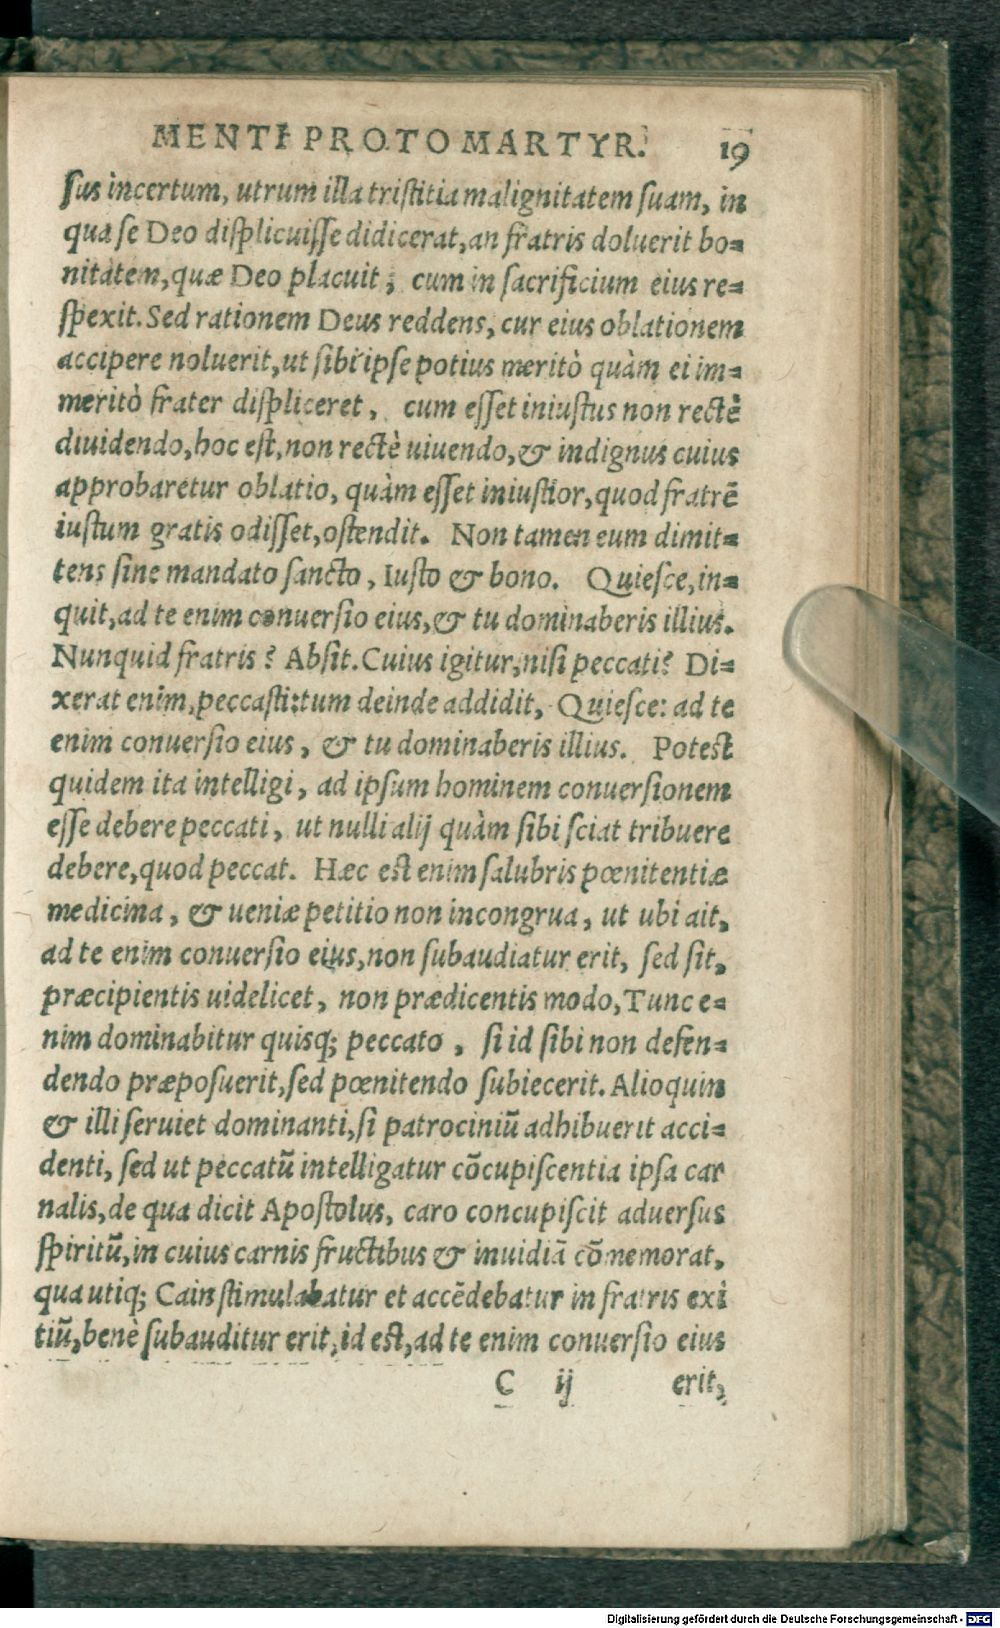 MENTI PROTOMARTYR. 19
sus incertum, utrum illa tristitia malignitatem suam, in
qua se Deo displicuisse didicerat, an fratris doluerit bo=
nitatem, quæ Deo placuit; cum in sacrificium eius re=
spexit. Sed rationem Deus reddens, cur eius oblationem
accipere noluerit, ut sibi ipse potius meritò quàm ei im=
meritò frater displiceret, cum esset iniustus non rectè
diuidendo, hoc est, non rectè uiuendo, & indignus cuius
approbaretur oblatio, quàm esset iniustior, quod fratrē
iustum gratis odisset, ostendit. Non tamen eum dimit=
tens sine mandato sancto, Iusto & bono. Quiesce, in=
quit, ad te enim conuersio eius, & tu dominaberis illius.
Nunquid fratris? Absit. Cuius igitur, nisi peccati? Di=
xerat enim, peccasti: tum deinde addidit, Quiesce: ad te
enim conuersio eius, & tu dominaberis illius. Potest
quidem ita intelligi, ad ipsum hominem conuersionem
esse debere peccati, ut nulli alij quàm sibi sciat tribuere
debere, quod peccat. Hæc est enim salubris pœnitentiæ
medicina, & ueniæ petitio non incongrua, ut ubi ait,
ad te enim conuersio eius, non subaudiatur erit, sed sit,
præcipientis uidelicet, non prædicentis modo, Tunc e=
nim dominabitur quisq; peccato, si id sibi non defen=
dendo præposuerit, sed pœnitendo subiecerit. Alioquin
& illi seruiet dominanti, si patrociniū adhibuerit acci=
denti, sed ut peccatū intelligatur cōcupiscentia ipsa car
nalis, de qua dicit Apostolus, caro concupiscit aduersus
spiritū, in cuius carnis fructibus & inuidiā cōmemorat,
qua utiq; Cain stimulabatur et accēdebatur in fratris exi
tiū, benè subauditur erit, id est, ad te enim conuersio eius
C ij erit,
Digitalisierung gefördert durch die Deutsche Forschungsgemeinschaft - DFG